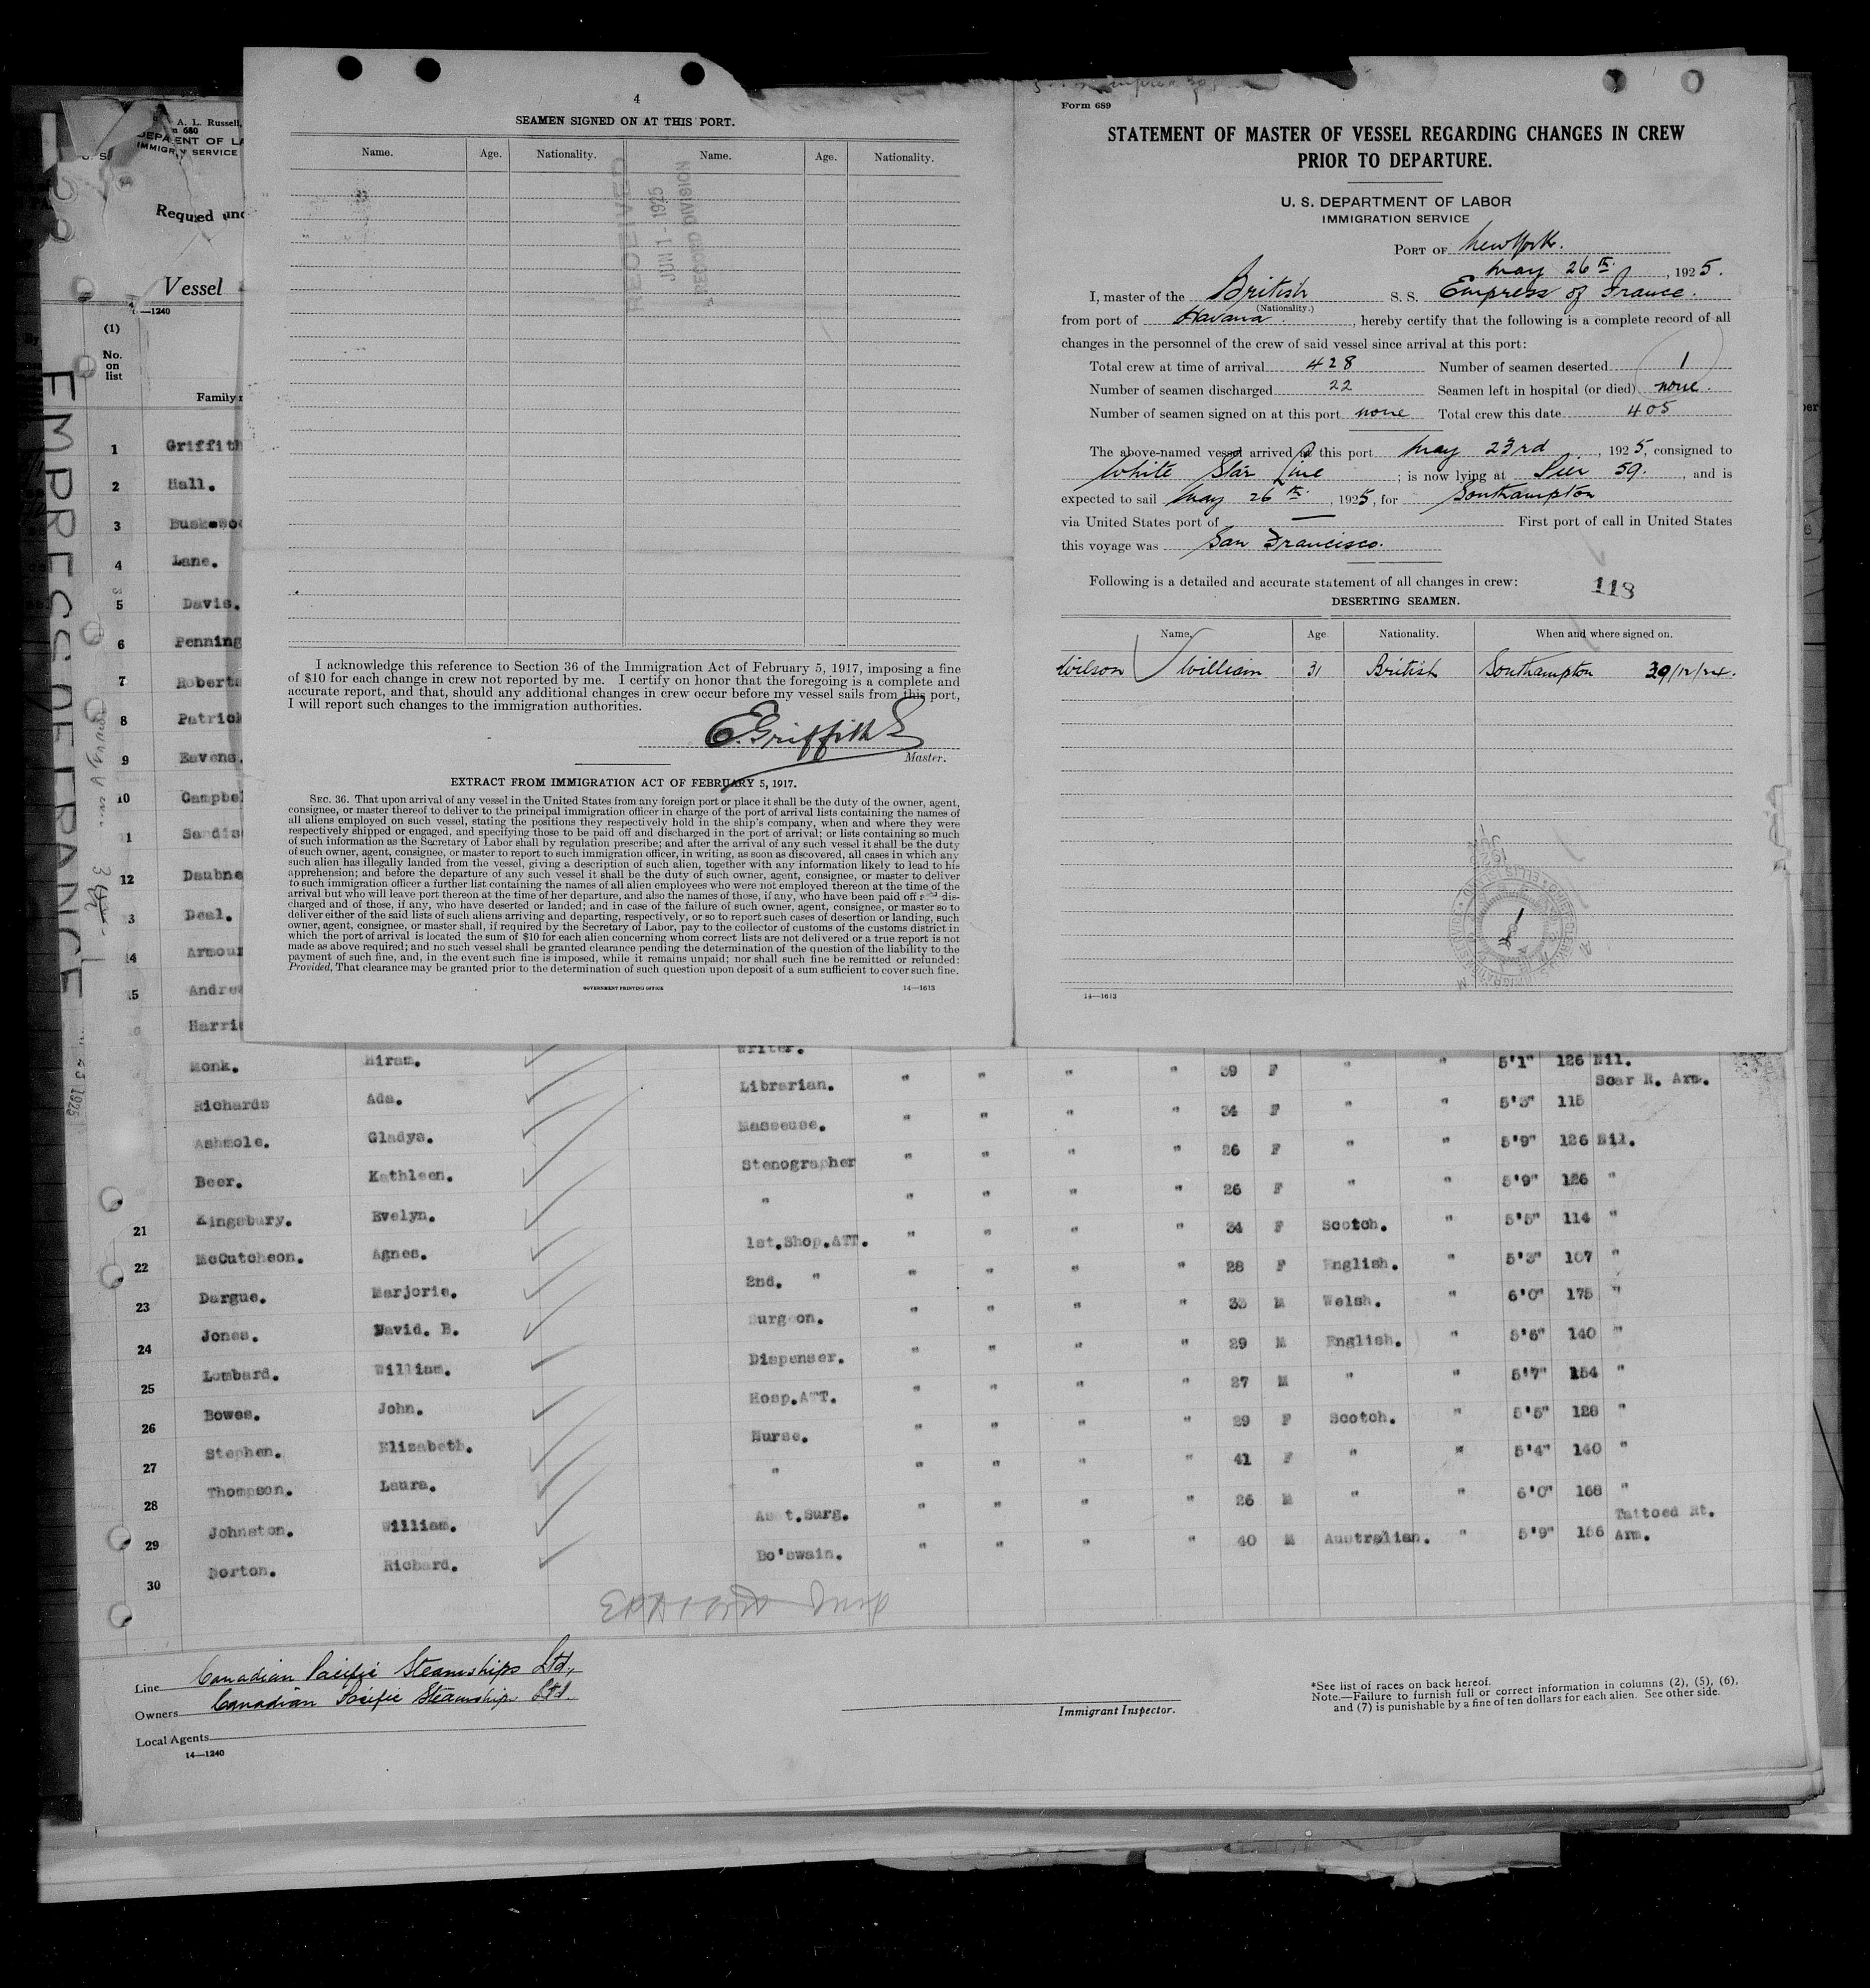 4
SEAMEN SIGNED ON AT THIS PORT.
Name. Age. Nationality. Name. Age. Nationality.
RECEIVED
JUN 1 - 1925
RECORD DIVISION
I acknowledge this reference to Section 36 of the Immigration Act of February 5, 1917, imposing a fine
of $10 for each change in crew not reported by me. I certify on honor that the foregoing is a complete and
accurate report, and that, should any additional changes in crew occur before my vessel sails from this port,
I will report such changes to the immigration authorities.
E. Griffiths
Master.
EXTRACT FROM IMMIGRATION ACT OF FEBRUARY 5, 1917.
SEC. 36. That upon arrival of any vessel in the United States from any foreign port or place it shall be the duty of the owner, agent,
consignee, or master thereof to deliver to the principal immigration officer in charge of the port of arrival lists containing the names of
all aliens employed on such vessel, stating the positions they respectively hold in the ship's company, when and where they were
respectively shipped or engaged, and specifying those to be paid off and discharged in the port of arrival; or lists containing so much
of such information as the Secretary of Labor shall by regulation prescribe; and after the arrival of any such vessel it shall be the duty
of such owner, agent, consignee, or master to report to such immigration officer, in writing, as soon as discovered, all cases in which any
such alien has illegally landed from the vessel, giving a description of such alien, together with any information likely to lead to his
apprehension; and before the departure of any such vessel it shall be the duty of such owner, agent, consignee, or master to deliver
to such immigration officer a further list containing the names of all alien employees who were not employed thereon at the time of the
arrival but who will leave port thereon at the time of her departure, and also the names of those, if any, who have been paid off and dis-
charged and of those, if any, who have deserted or landed; and in case of the failure of such owner, agent, consignee, or master so to
deliver either of the said lists of such aliens arriving and departing, respectively, or so to report such cases of desertion or landing, such
owner, agent, consignee, or master shall, if required by the Secretary of Labor, pay to the collector of customs of the customs district in
which the port of arrival is located the sum of $10 for each alien concerning whom correct lists are not delivered or a true report is not
made as above required; and no such vessel shall be granted clearance pending the determination of the question of the liability to the
payment of such fine, and, in the event such fine is imposed, while it remains unpaid; nor shall such fine be remitted or refunded:
Provided, That clearance may be granted prior to the determination of such question upon deposit of a sum sufficient to cover such fine.
GOVERNMENT PRINTING OFFICE 14—1613
Form 689
STATEMENT OF MASTER OF VESSEL REGARDING CHANGES IN CREW
PRIOR TO DEPARTURE.
U. S. DEPARTMENT OF LABOR
IMMIGRATION SERVICE
PORT OF New York.
May 26th. , 1925.
I, master of the British S. S. Empress of France.
(Nationality.)
from port of Havana. , hereby certify that the following is a complete record of all
changes in the personnel of the crew of said vessel since arrival at this port:
Total crew at time of arrival 428 Number of seamen deserted 1
Number of seamen discharged 22 Seamen left in hospital (or died) none.
Number of seamen signed on at this port none Total crew this date 405
The above-named vessel arrived at this port May 23rd , 1925, consigned to
White Star Line ; is now lying at Pier 59. , and is
expected to sail May 26th. , 1925, for Southampton
via United States port of — First port of call in United States
this voyage was San Francisco.
Following is a detailed and accurate statement of all changes in crew:
118
DESERTING SEAMEN.
Name. Age. Nationality. When and where signed on.
Wilson William 31 British Southampton 29/12/24.
14—1613
A. L. Russell,
IMMIGR SERVICE
Required und
Vessel
—1240
(1)
No.
on
list
Family n
EMPRESS OF FRANCE
1 Griffith
2 Hall.
3
4 Lane.
5 Davis.
6 Penning
7 Roberts
8 Patrick
9 Eavens.
10 Campbel
Sardis
12 Daubne
Deal.
Armour
Andre
Harri
Monk. Hiram. Writer.
Richards Ada. Librarian. " " " " 39 F " " 5'1" 126 Nil.
Scar R. Arm.
Ashmole. Gladys. Masseuse. " " " " 34 F " " 5'3" 115
Beer. Kathleen. Stenographer " " " " 26 F " " 5'9" 126 Nil.
21 Kingsbury. Evelyn. " " " " " 26 F " " 5'9" 126 "
22 McCutcheon. Agnes. 1st.Shop.ATT. " " " " 34 F Scotch. " 5'5" 114 "
23 Dargue. Marjorie. 2nd. " " " " " 28 F English. " 5'3" 107 "
24 Jones. David. B. Surgeon. " " " " 33 M Welsh. " 6'0" 175 "
25 Lombard. William. Dispenser. " " " " 29 M English. " 5'6" 140 "
26 Bowes. John. Hosp.ATT. " " " " 27 M " " 5'7" 154 "
27 Stephen. Elizabeth. Nurse. " " " " 29 F Scotch. " 5'5" 128 "
28 Thompson. Laura. " " " " " 41 F " " 5'4" 140 "
29 Johnston. William. Asst.Surg. " " " " 26 M " " 6'0" 168 "
30 Norton. Richard. Bo'swain. " " " " 40 M Australian. " 5'9" 156 Tattoed Rt.
Arm.
Line Canadian Pacific Steamships Ltd.,
Owners Canadian Pacific Steamship Ltd.
Local Agents
14—1240
Immigrant Inspector.
*See list of races on back hereof.
Note.—Failure to furnish full or correct information in columns (2), (5), (6),
and (7) is punishable by a fine of ten dollars for each alien. See other side.